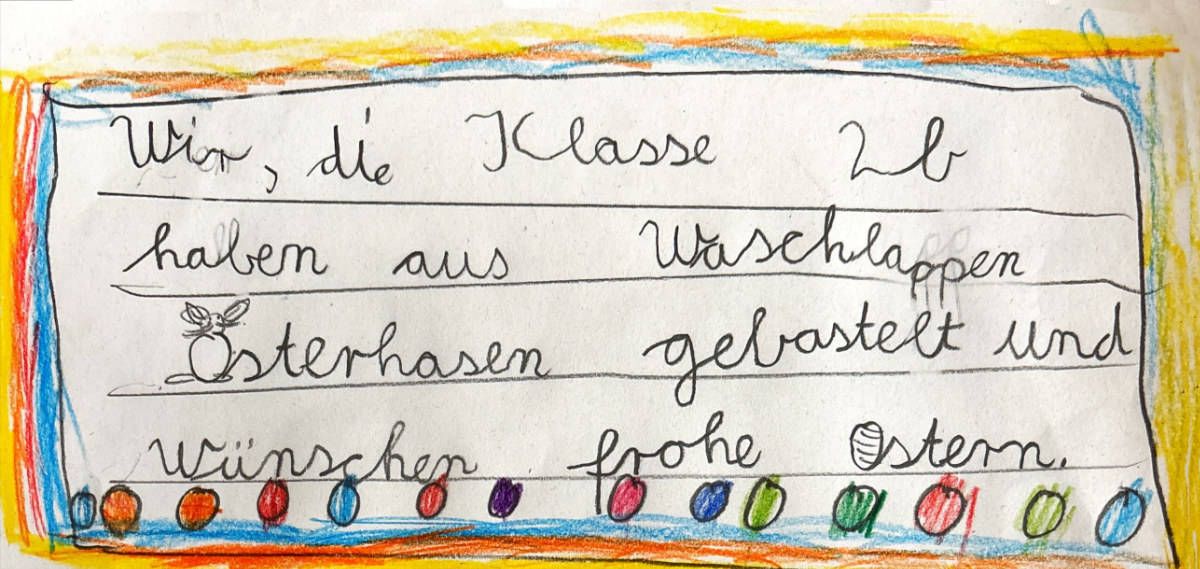 Wir, die Klasse 2b
haben aus Waschlappen
Osterhasen gebastelt und
wünschen frohe Ostern.